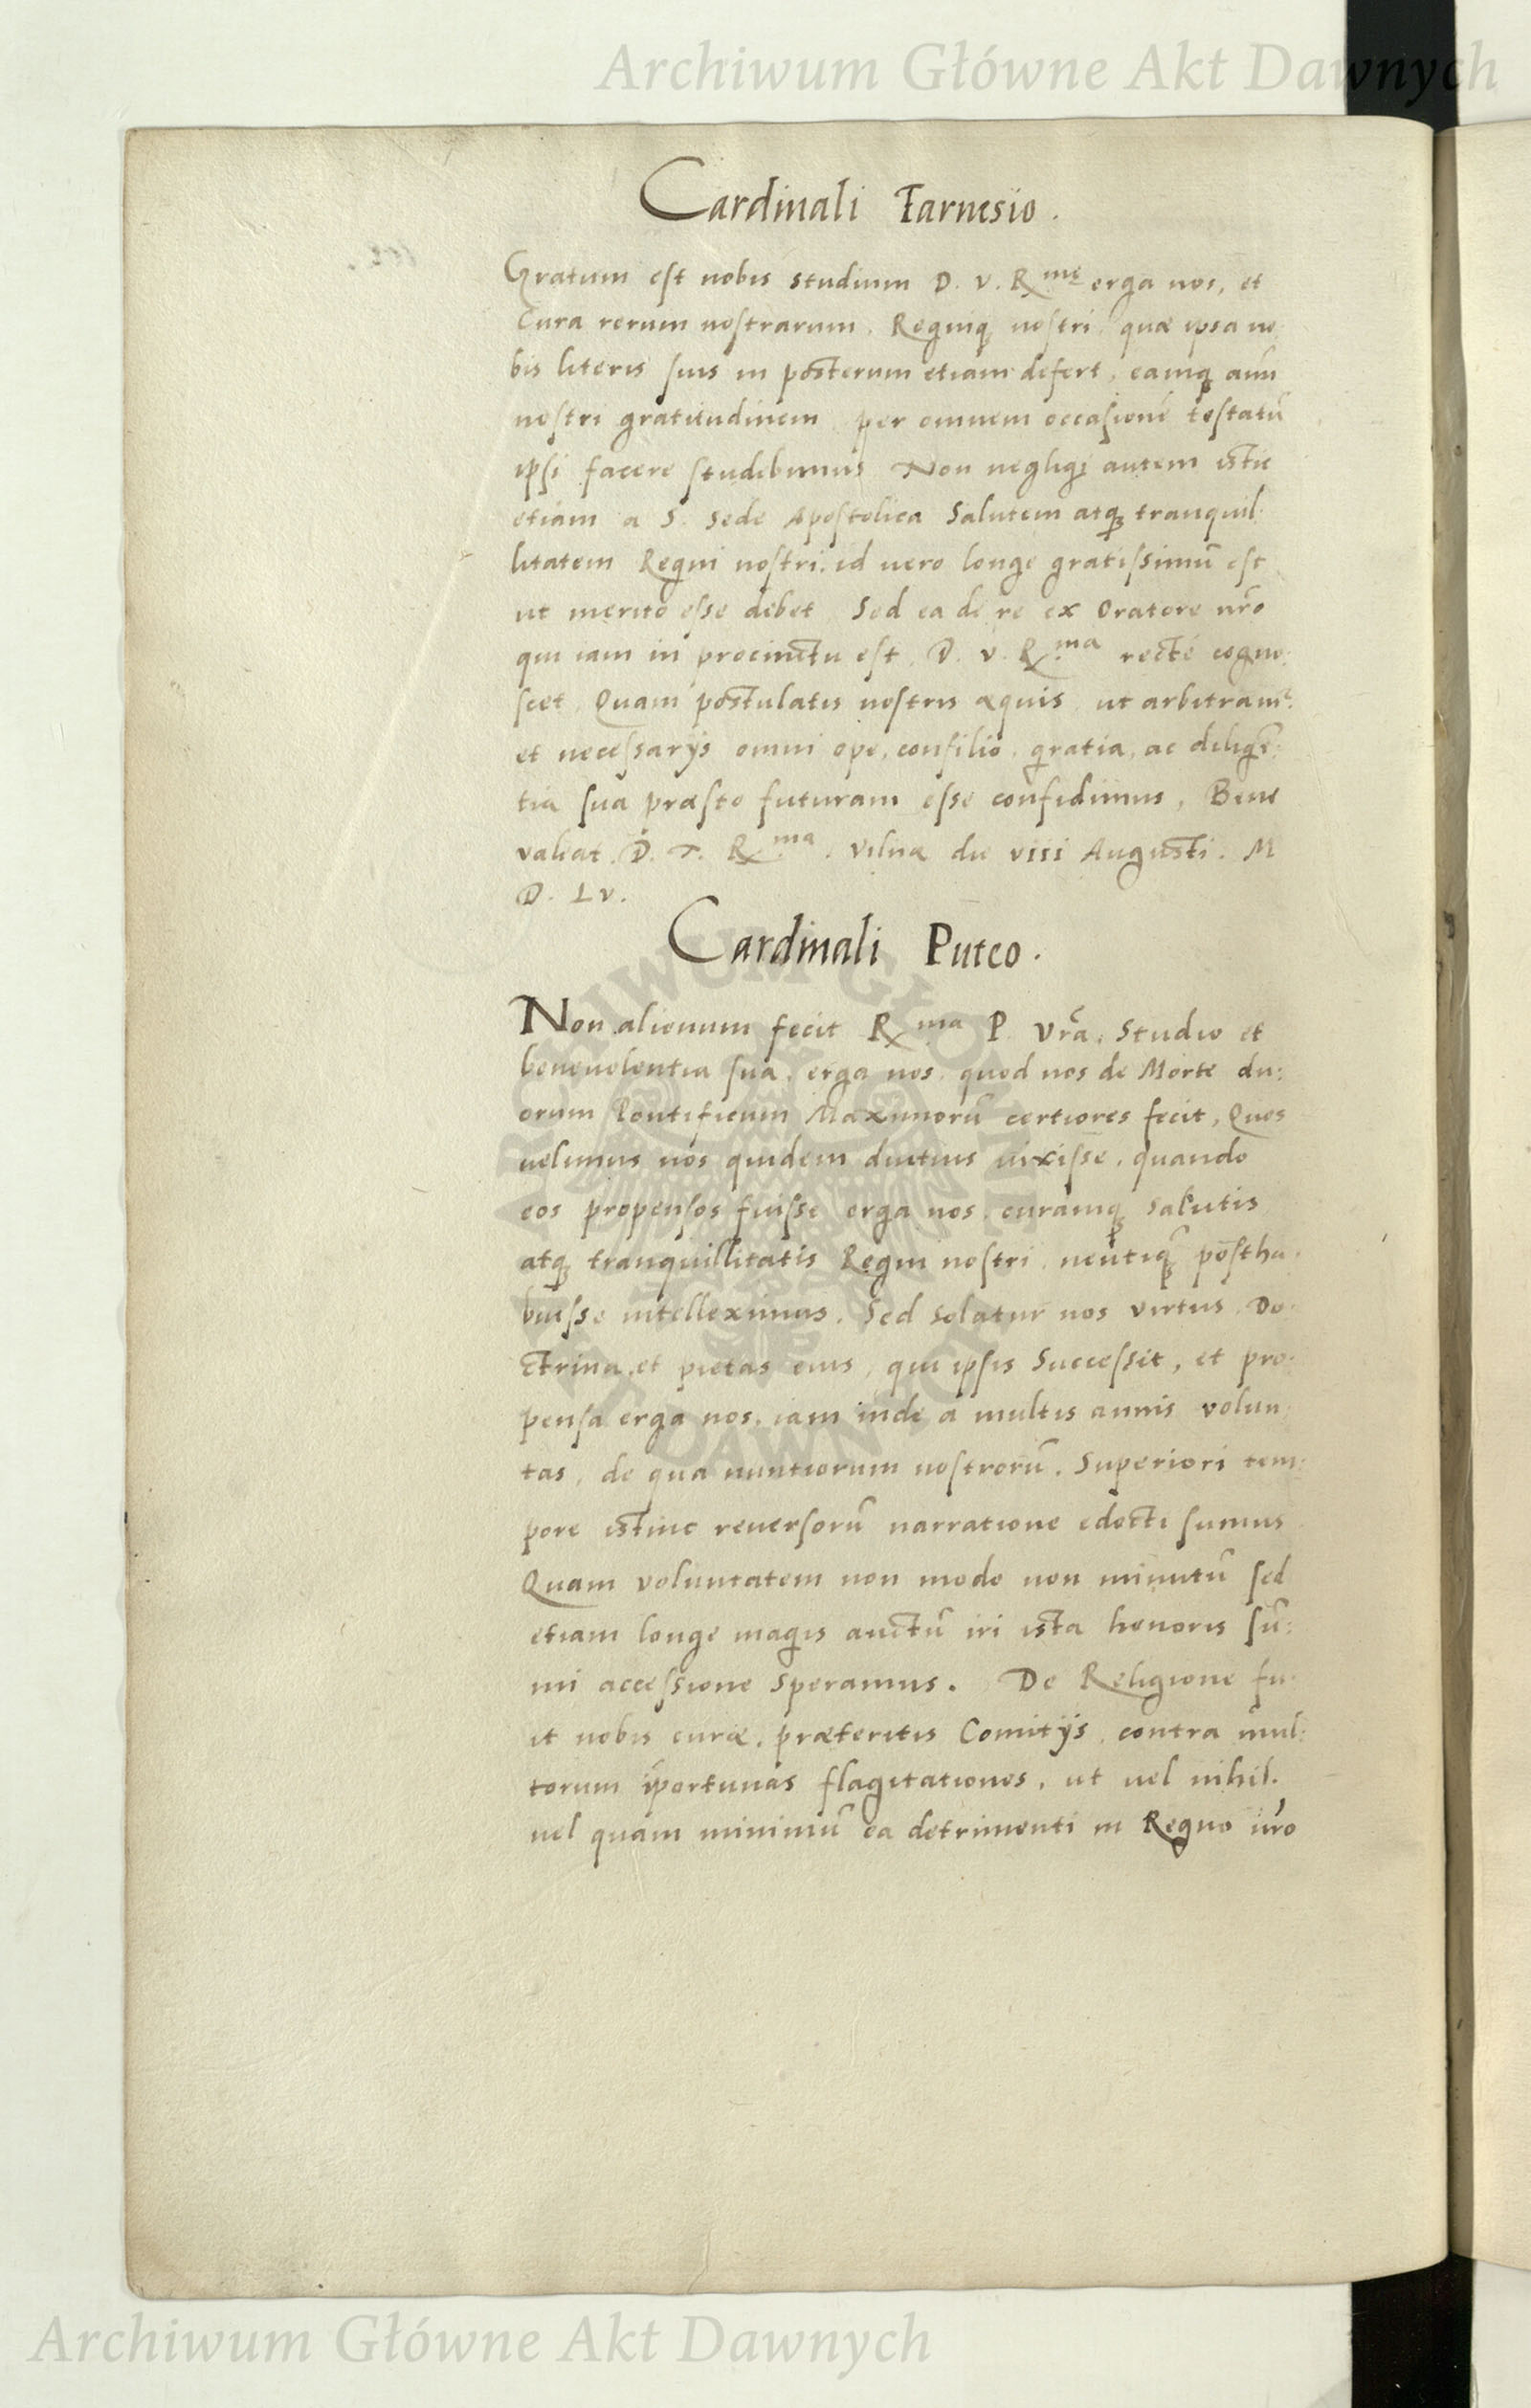 Archiwum Główne Akt Dawnych
Cardinali Farnesio.
Gratum est nobis studium D. V. R.mę erga nos, et
Cura rerum nostrarum, Regniq nostri, quae ipsa no
bis literis suis in posterum etiam defert, eamq
nostri gratitudinem per omnem occasionē testatū
ipsi facere studebimus Non negligi autem istic
etiam a S. Sede Apostolica Salutem atq tranquil:
litatem Regni nostri, id vero longe gratissimū est
ut merito esse debet, Sed ea de re ex Oratore nr̃o
qui iam in procinctu est, D. V. R.ma recté cogno:
scet, Quam postulatis nostris aequis, ut arbitramr
et necessarijs omni ope, consilio, gratia, ac diligē:
tia sua praesto futuram esse confidimus, Bene
valeat D. R.ma. Vilna die viii Augusti. M
D. LV.
Cardinali Puteo.
Non alienum fecit R.ma P. Vr̃a, Studio et
beneuolentia sua, erga nos, quod nos de Morte du:
orum Pontificum Maximorū certiores fecit, Quos
uelimus nos quidem diutius uixisse, quando
eos propensos fuisse erga nos, curamq salutis
atq tranquillitatis Regni nostri, neutiq̃ postha:
buisse intelleximus. Sed solatur nos virtus, Do:
ctrina, et pietas eius, qui ipsis Successit, et pro:
pensa erga nos, iam inde a multis annis volun
tas, de qua nuntiorum nostrorū, Superiori tem:
pore istinc reuersorū narratione edocti sumus
Quam voluntatem non modo non minutū sed
etiam longe magis auctū iri ista honoris sū:
mi accessione speramus. De Religione fu:
it nobis curae, praeteritis Comitijs, contra mul:
torum īportunas flagitationes, ut vel nihil.
uel quam minimū ea detrimenti in Regno nr̃o
Archiwum Główne Akt Dawnych